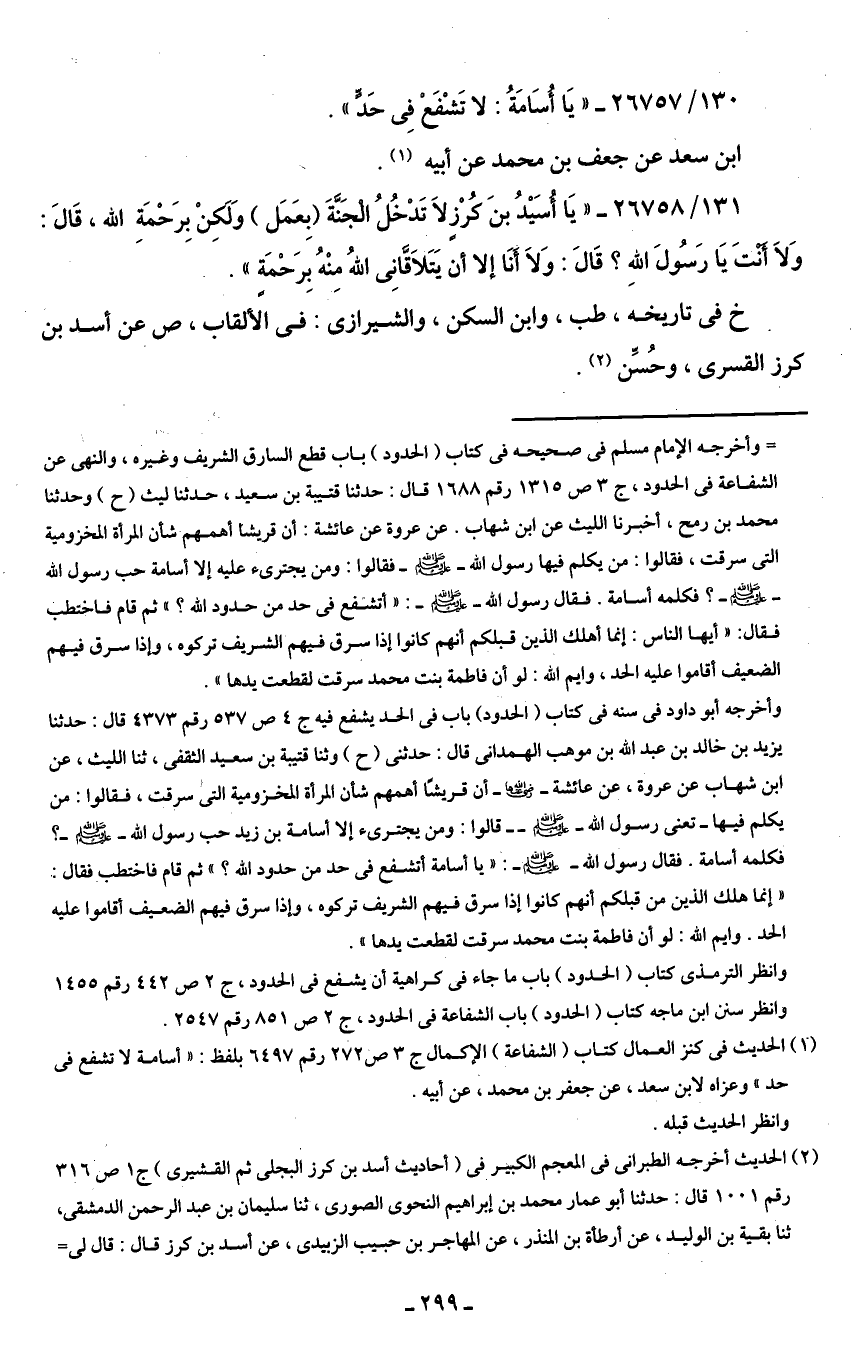 ١٣٠/ ٢٦٧٥٧ ـ « يَا أُسَامَةُ : لا تَشْفَعْ فِى حَدٍّ » .
ابن سعد عن جعف بن محمد عن أبيه (١) .
١٣١/ ٢٦٧٥٨ ـ « يَا أُسَيْدُ بنَ كُرْزٍ لاَ تَدْخُلُ الْجَنَّةَ (بِعَمَلٍ ) وَلَكِنْ بِرَحْمَةِ الله ، قَالَ :
وَلاَ أَنْتَ يَا رَسُولَ اللهِ ؟ قَالَ : وَلاَ أَنَا إلا أن يَتَلاَقَّانِى اللهُ مِنْهُ بِرَحْمَةٍ » .
خ فى تاريخه ، طب ، وابن السكن ، والشيرازى : فى الألقاب ، ص عن أسد بن
كرز القسرى ، وحُسِّن (٢) .
= وأخرجه الإمام مسلم فى صحيحه فى كتاب ( الحدود ) باب قطع السارق الشريف وغيره ، والنهى عن
الشفاعة فى الحدود ، ج ٣ ص ١٣١٥ رقم ١٦٨٨ قال : حدثنا قتيبة بن سعيد ، حدثنا ليث ( ح ) وحدثنا
محمد بن رمح ، أخبرنا الليث عن ابن شهاب . عن عروة عن عائشة : أن قريشا أهمهم شأن المرأة المخزومية
التى سرقت ، فقالوا : من يكلم فيها رسول الله ـ ﷺ ـ فقالوا : ومن يجترىء عليه إلا أسامة حب رسول الله
ـ ﷺ ـ ؟ فكلمه أسامة . فقال رسول الله ـ ﷺ ـ : « أتشفع فى حد من حدود الله ؟ » ثم قام فاختطب
فقال: « أيها الناس : إنما أهلك الذين قبلكم أنهم كانوا إذا سرق فيهم الشريف تركوه ، وإذا سرق فيهم
الضعيف أقاموا عليه الحد ، وايم الله : لو أن فاطمة بنت محمد سرقت لقطعت يدها » .
وأخرجه أبو داود فى سنه فى كتاب ( الحدود) باب فى الحد يشفع فيه ج ٤ ص ٥٣٧ رقم ٤٣٧٣ قال : حدثنا
يزيد بن خالد بن عبد الله بن موهب الهمدانى قال : حدثنى ( ح ) وثنا قتيبة بن سعيد الثقفى ، ثنا الليث ، عن
ابن شهاب عن عروة ، عن عائشة ـ رضي الله عنها ـ أن قريشًا أهمهم شأن المرأة المخزومية التى سرقت ، فقالوا : من
يكلم فيها ـ تعنى رسول الله ـ ﷺ ـ ـ قالوا : ومن يجترىء إلا أسامة بن زيد حب رسول الله ـ ﷺ ـ؟
فكلمه أسامة . فقال رسول الله ـ ﷺ ـ : « يا أسامة أتشفع فى حد من حدود الله ؟ » ثم قام فاختطب فقال :
« إنما هلك الذين من قبلكم أنهم كانوا إذا سرق فيهم الشريف تركوه ، وإذا سرق فيهم الضعيف أقاموا عليه
الحد . وايم الله : لو أن فاطمة بنت محمد سرقت لقطعت يدها » .
وانظر الترمذى كتاب ( الحدود ) باب ما جاء فى كراهية أن يشفع فى الحدود ، ج ٢ ص ٤٤٢ رقم ١٤٥٥
وانظر سنن ابن ماجه كتاب ( الحدود ) باب الشفاعة فى الحدود ، ج ٢ ص ٨٥١ رقم ٢٥٤٧ .
(١) الحديث فى كنز العمال كتاب ( الشفاعة ) الإكمال ج ٣ ص٢٧٢ رقم ٦٤٩٧ بلفظ : « أسامة لا تشفع فى
حد » وعزاه لابن سعد ، عن جعفر بن محمد ، عن أبيه .
وانظر الحديث قبله .
(٢) الحديث أخرجه الطبرانى فى المعجم الكبير فى ( أحاديث أسد بن كرز البجلى ثم القشيرى ) ج١ ص ٣١٦
رقم ١٠٠١ قال : حدثنا أبو عمار محمد بن إبراهيم النحوى الصورى ، ثنا سليمان بن عبد الرحمن الدمشقى،
ثنا بقية بن الوليد ، عن أرطأة بن المنذر ، عن المهاجر بن حبيب الزبيدى ، عن أسد بن كرز قال : قال لى=
ـ ٢٩٩ ـ